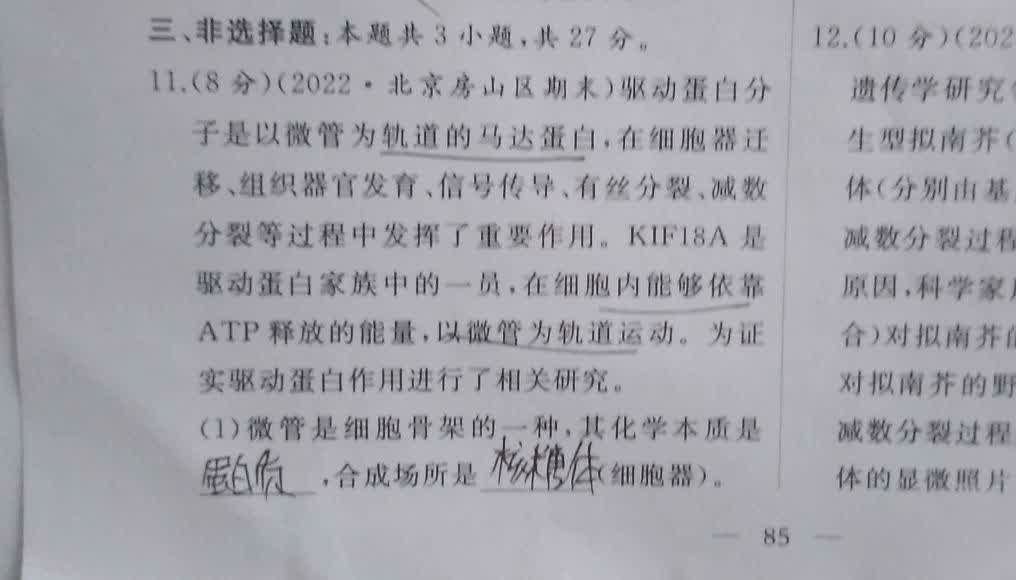 三、非选择题:本题共 3 小题,共 27 分。
11.(8 分)(2022·北京房山区期末)驱动蛋白分
子是以微管为轨道的马达蛋白,在细胞器迁
移、组织器官发育、信号传导、有丝分裂、减数
分裂等过程中发挥了重要作用。KIF18A 是
驱动蛋白家族中的一员,在细胞内能够依靠
ATP 释放的能量,以微管为轨道运动。为证
实驱动蛋白作用进行了相关研究。
(1)微管是细胞骨架的一种,其化学本质是
蛋白质,合成场所是核糖体(细胞器)。
12.(10 分)(202
遗传学研究
生型拟南芥(
体(分别由基
减数分裂过程
原因,科学家
合)对拟南芥的
对拟南芥的野
减数分裂过程
体的显微照片
— 85 —